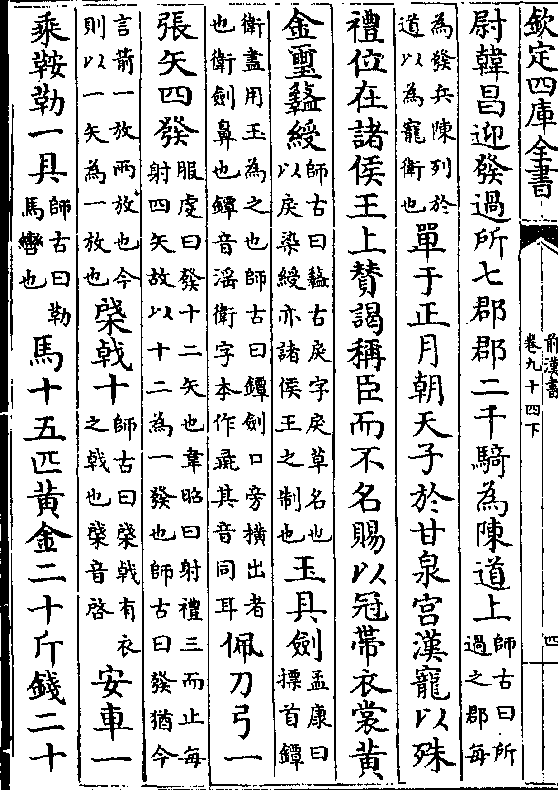 欽定四庫全書
前漢書
卷九十四下
四
尉韓昌迎發過所七郡郡二千騎為陳道上師古曰所過之郡每
為發兵陳列於道以為寵衛也單于正月朝天子於甘泉宮漢寵以殊
禮位在諸侯王上賛謁稱臣而不名賜以冠帶衣裳黃
金璽盭綬師古曰盭古戾字戾草名也以戾染綬亦諸侯王之制也玉具劍孟康曰摽首鐔
衛盡用玉為之也師古曰鐔劍口旁横出者也衛劍鼻也鐔音滛衛字本作彘其音同耳佩刀弓一
張矢四發服虔曰發十二矢也韋昭曰射禮三而止每射四矢故以十二為一發也師古曰發猶今
言箭一放兩放也今則以一矢為一放也棨戟十師古曰棨戟有衣之戟也棨音啓安車一
乘鞍勒一具師古曰勒馬轡也馬十五匹黃金二十斤錢二十